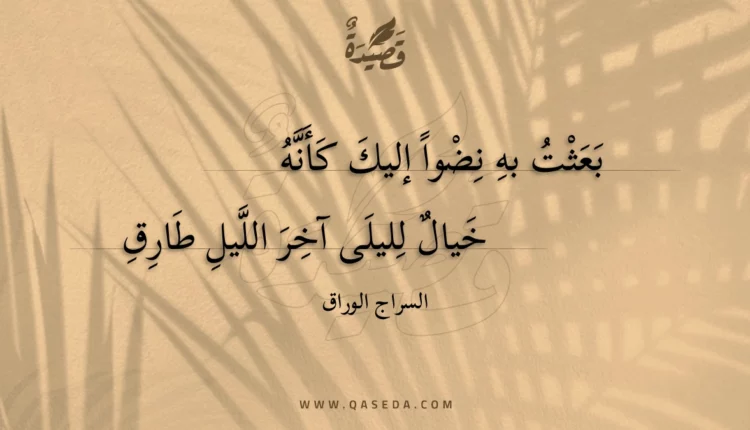 قَصِيدَةٌ
بَعَثْتُ بهِ نِضْواً إليكَ كَأَنَّهُ
خَيالٌ لِليلَى آخِرَ اللَّيلِ طَارِقِ
السراج الوراق
WWW.QASEDA.COM